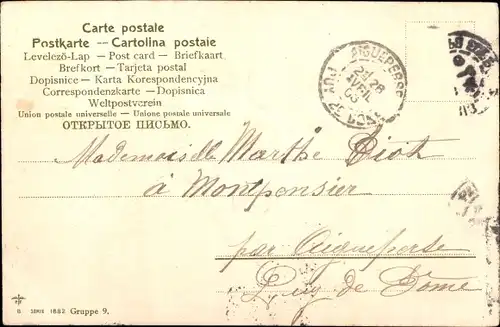 Carte postale
Postkarte -- Cartolina postale
Levelező-Lap — Post card — Briefkaart
Brefkort — Tarjeta postal
Dopisnice — Karta Korespondencyjna
Correspondenzkarte — Dopisnica
Weltpostverein
Union postale universelle — Unione postale universale
ОТКРЫТОЕ ПИСЬМО.
AIGUEPERSE
28
AVRIL
03
PUY DE DOME
Mademoiselle Marthe
à Montpensier
par Aigueperse
Puy de Dôme
SERIE 1882 Gruppe 9.